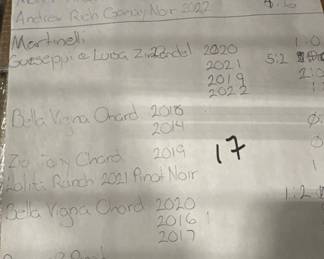 Andrew Rich Pinot Noir 2022
Martinelli
Guiseppi & Luisa Zinfandel 2020 1:0
2021 5:2
2019 2:0
2022
Bella Vigna Chard 2018
2014
Zio Tony Chard 2019 17
Lolita Ranch 2021 Pinot Noir 1
Bella Vigna Chard 2020
2016 1
2017